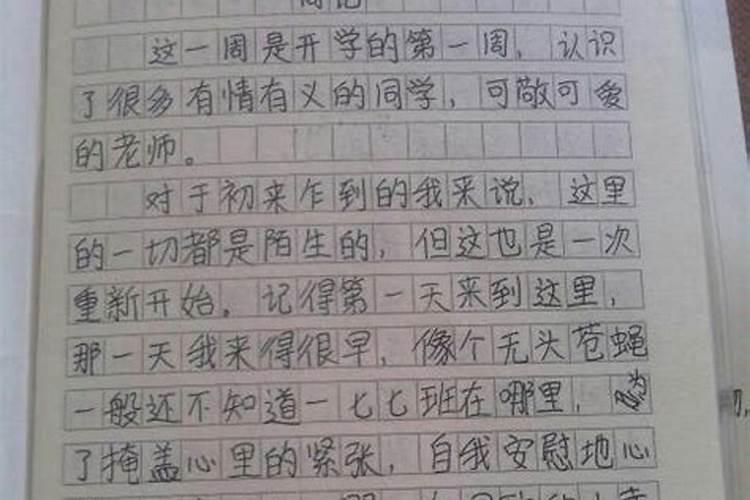 周记
这一周是开学的第一周，认识
了很多有情有义的同学，可敬可爱
的老师。
对于初来乍到的我来说，这里
的一切都是陌生的，但这也是一次
重新开始。记得第一天来到这里，
那一天我来得很早，像个无头苍蝇
一般还不知道一七七班在哪里，为
了掩盖心里的紧张，自我安慰地心